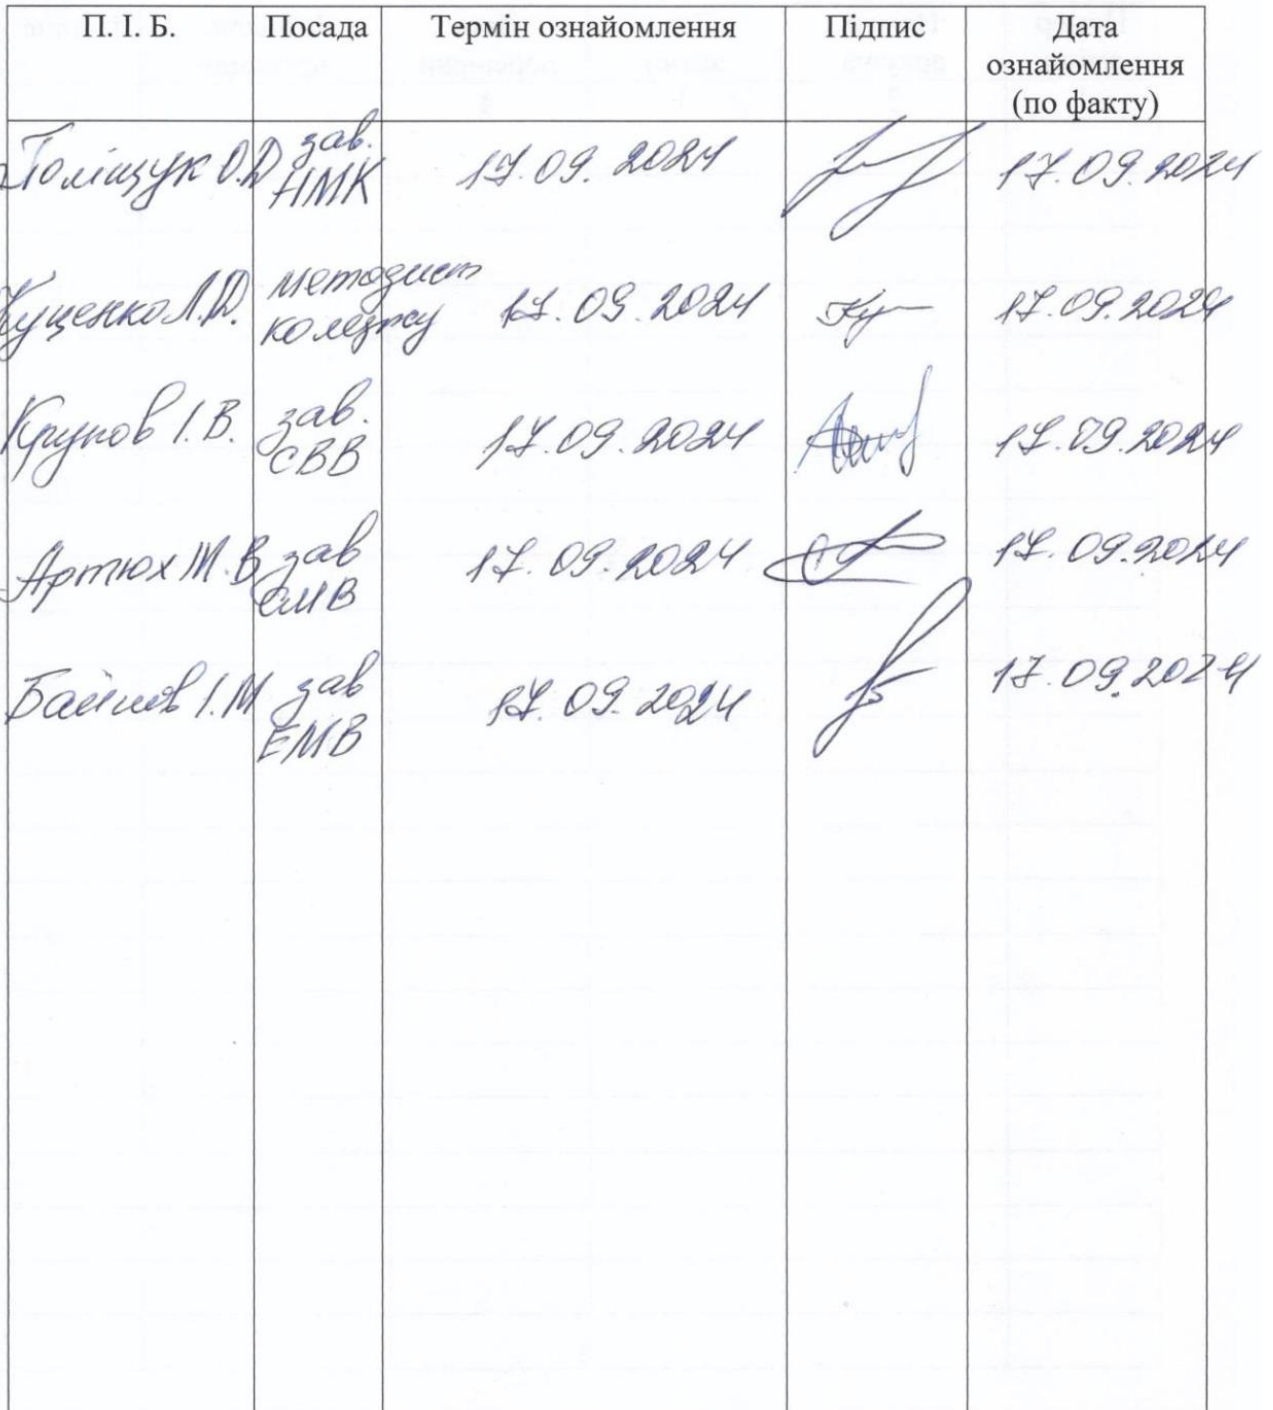 П.І. Б. Посада Термін ознайомлення Підпис Дата
ознайомлення
(по факту)
Поліщук О.Д зав.
НМК 17.09.2024 17.09.2024
Куценко Л.Д. методист
коледжу 17.09.2024 17.09.2024
Крупов І.В. зав.
СВВ 17.09.2024 17.09.2024
Артюх М.В зав
ЕМВ 17.09.2024 17.09.2024
І.М зав
ЕМВ 17.09.2024 17.09.2024